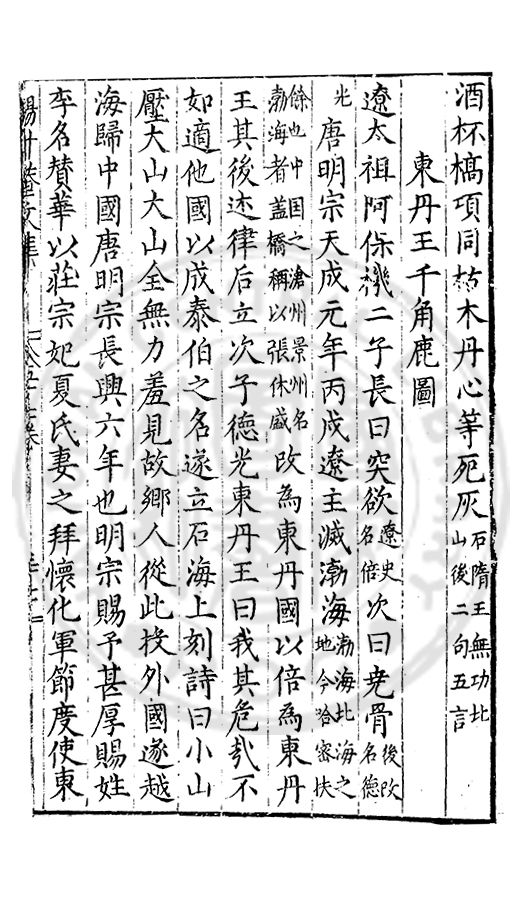 酒杯槁項同枯木丹心等死灰石隋王無功比山後二句五言
東丹王千角鹿圖
遼太祖阿保機二子長曰突欲遼史名倍次曰尭骨後改名德
光唐明宗天成元年丙戌遼主滅渤海渤海北海之地今哈密扶
餘也中国之滄州景州名渤海者盖橋稱以張休盛改為東丹國以倍為東丹
王其後述律后立次子德光東丹王曰我其危㢤不
如適他國以成泰伯之名遂立石海上刻詩曰小山
壓大山大山全無力羞見故鄉人從此投外國遂越
海歸中國唐明宗長興六年也明宗賜予甚厚賜姓
李名賛華以莊宗妃夏氏妻之拜懷化軍節度使東